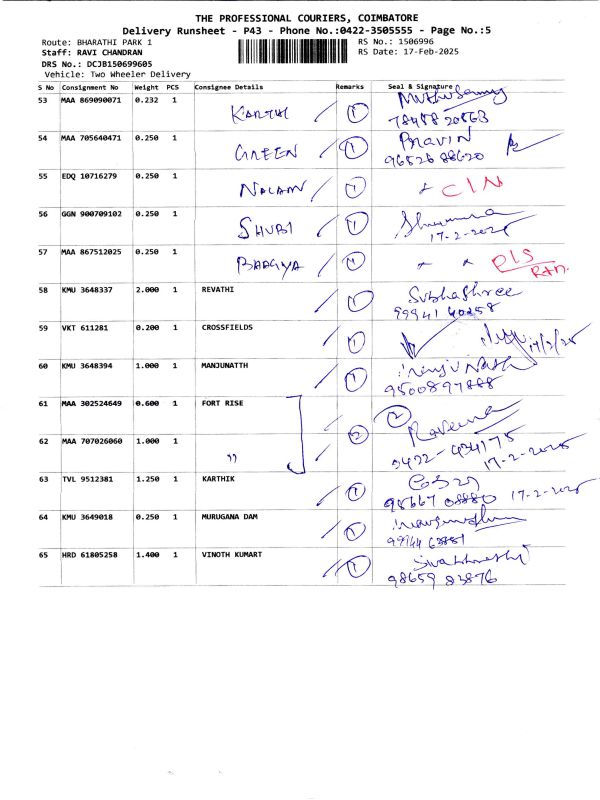 THE PROFESSIONAL COURIERS, COIMBATORE
Delivery Runsheet - P43 - Phone No.:0422-3505555 - Page No.:5
Route: BHARATHI PARK 1 RS No.: 1506996
Staff: RAVI CHANDRAN RS Date: 17-Feb-2025
DRS No.: DCJB150699605
Vehicle: Two Wheeler Delivery
S No Consignment No Weight PCS Consignee Details Remarks Seal & Signature
53 MAA 869090071 0.232 1 KARTHI 1 Muthusamy
78488 20863
54 MAA 705640471 0.250 1 GREEN 1 Pravin
96526 88620
55 EDQ 10716279 0.250 1 1 CIN
56 GGN 900709102 0.250 1 SHUBI 1
17-2-2025
57 MAA 867512025 0.250 1 BHAGYA 1 PLS
Rtn.
58 KMU 3648337 2.000 1 REVATHI 1 Subhashree
99941 40258
59 VKT 611281 0.200 1 CROSSFIELDS 1 17/2/25
60 KMU 3648394 1.000 1 MANJUNATTH 1 Manjunath
9500897888
61 MAA 302524649 0.600 1 FORT RISE 2 2
Raveena
62 MAA 707026060 1.000 1 " 0422-434175
17-2-2025
63 TVL 9512381 1.250 1 KARTHIK 1
98667 08880 17-2-2025
64 KMU 3649018 0.250 1 MURUGANA DAM 1
99944 63881
65 HRD 61805258 1.400 1 VINOTH KUMART 1
98659 83876